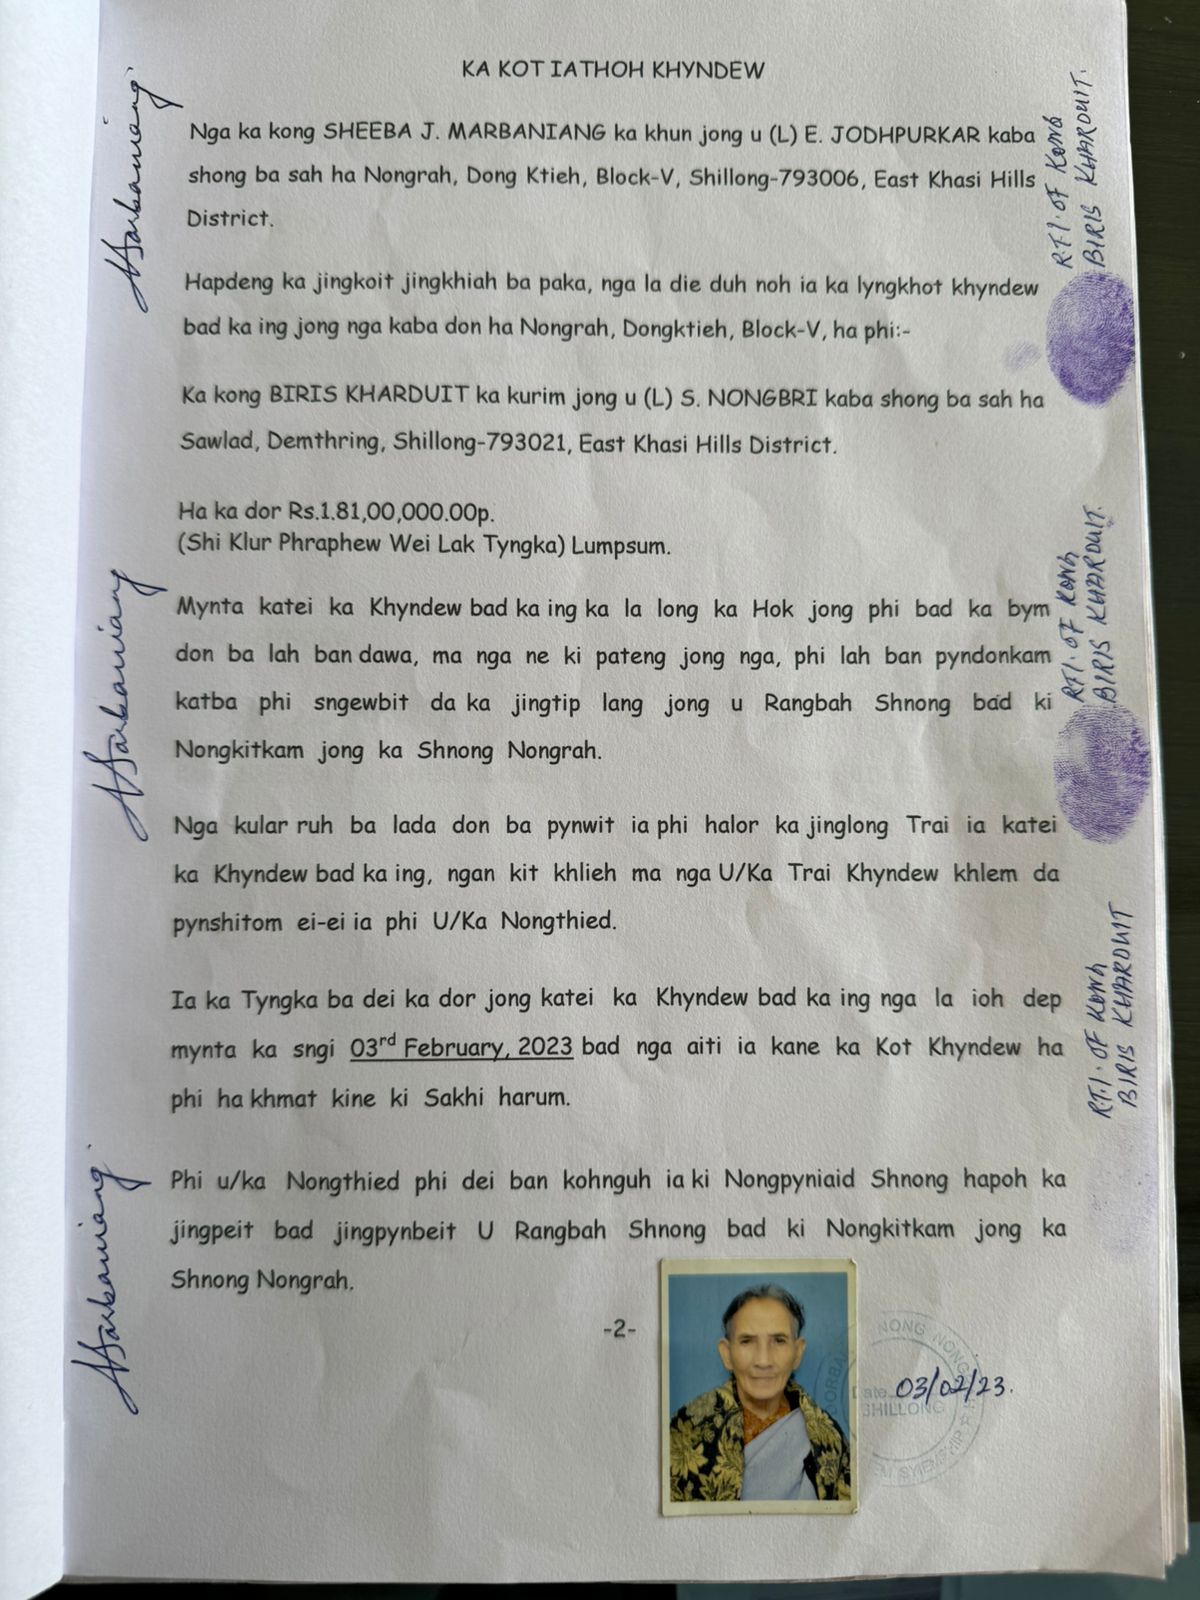 KA KOT IATHOH KHYNDEW
Nga ka kong SHEEBA J. MARBANIANG ka khun jong u (L) E. JODHPURKAR kaba
shong ba sah ha Nongrah, Dong Ktieh, Block-V, Shillong-793006, East Khasi Hills
District.
Hapdeng ka jingkoit jingkhiah ba paka, nga la die duh noh ia ka lyngkhot khyndew
bad ka ing jong nga kaba don ha Nongrah, Dongktieh, Block-V, ha phi:-
Ka kong BIRIS KHARDUIT ka kurim jong u (L) S. NONGBRI kaba shong ba sah ha
Sawlad, Demthring, Shillong-793021, East Khasi Hills District.
Ha ka dor Rs.1.81,00,000.00p.
(Shi Klur Phraphew Wei Lak Tyngka) Lumpsum.
Mynta katei ka Khyndew bad ka ing ka la long ka Hok jong phi bad ka bym
don ba lah ban dawa, ma nga ne ki pateng jong nga, phi lah ban pyndonkam
katba phi sngewbit da ka jingtip lang jong u Rangbah Shnong bad ki
Nongkitkam jong ka Shnong Nongrah.
Nga kular ruh ba lada don ba pynwit ia phi halor ka jinglong Trai ia katei
ka Khyndew bad ka ing, ngan kit khlieh ma nga U/Ka Trai Khyndew khlem da
pynshitom ei-ei ia phi U/Ka Nongthied.
Ia ka Tyngka ba dei ka dor jong katei ka Khyndew bad ka ing nga la ioh dep
mynta ka sngi 03rd February, 2023 bad nga aiti ia kane ka Kot Khyndew ha
phi ha khmat kine ki Sakhi harum.
Phi u/ka Nongthied phi dei ban kohnguh ia ki Nongpyniaid Shnong hapoh ka
jingpeit bad jingpynbeit U Rangbah Shnong bad ki Nongkitkam jong ka
Shnong Nongrah.
-2-
Marbaniang
Marbaniang
Marbaniang
R.T.I. OF KONG
BIRIS KHARDUIT.
RTI. OF KONG
BIRIS KHARDUIT.
R.T.I. OF KONG
BIRIS KHARDUIT
DORBAR
NONG NONG
Date 03/02/23.
SHILLONG
EM SYIEMSHIP